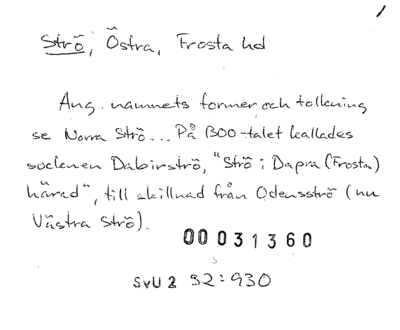 1
Strö, Östra, Frosta hd
Ang. namnets former och tolkning
se Norra Strö... På 1300-talet kallades
socknen Dabirströ, "Strö i Dapra (Frosta)
härad", till skillnad från Odensströ (nu
Västra Strö).
00031360
SVU2 32:930